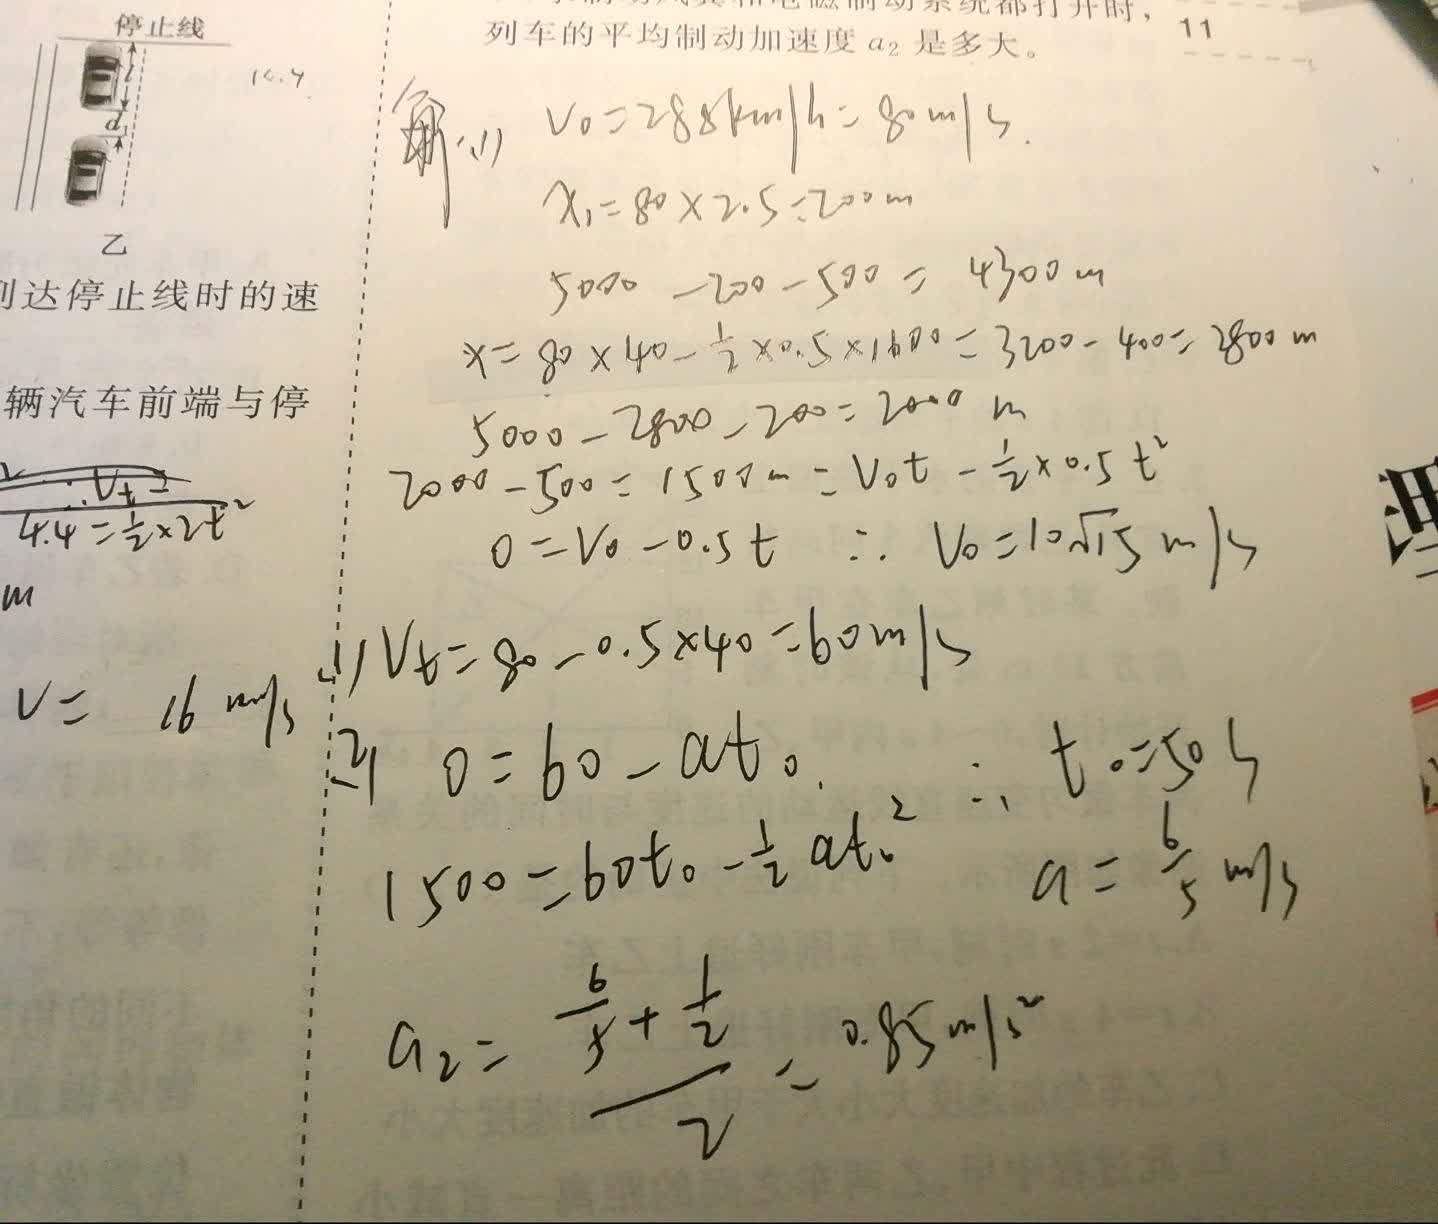 停止线
l
d
乙
到达停止线时的速
辆汽车前端与停
4.4=½×2t²
m
v= 16 m/s
10.4
列车的平均制动加速度a₂是多大。
11
解:(1) V₀=288km/h=80m/s.
x₁=80×2.5=200m
5000-200-500=4300m
x=80×40-½×0.5×1600=3200-400=2800m
5000-2800-200=2000 m
2000-500=1500m=V₀t-½×0.5t²
0=V₀-0.5t ∴ V₀=10√15 m/s
(1) Vt=80-0.5×40=60m/s
(2) 0=60-at₀. ∴ t₀=50s
1500=60t₀-½at₀² a=6/5 m/s
a₂=(6/5+1/2)/2=0.85m/s²
理